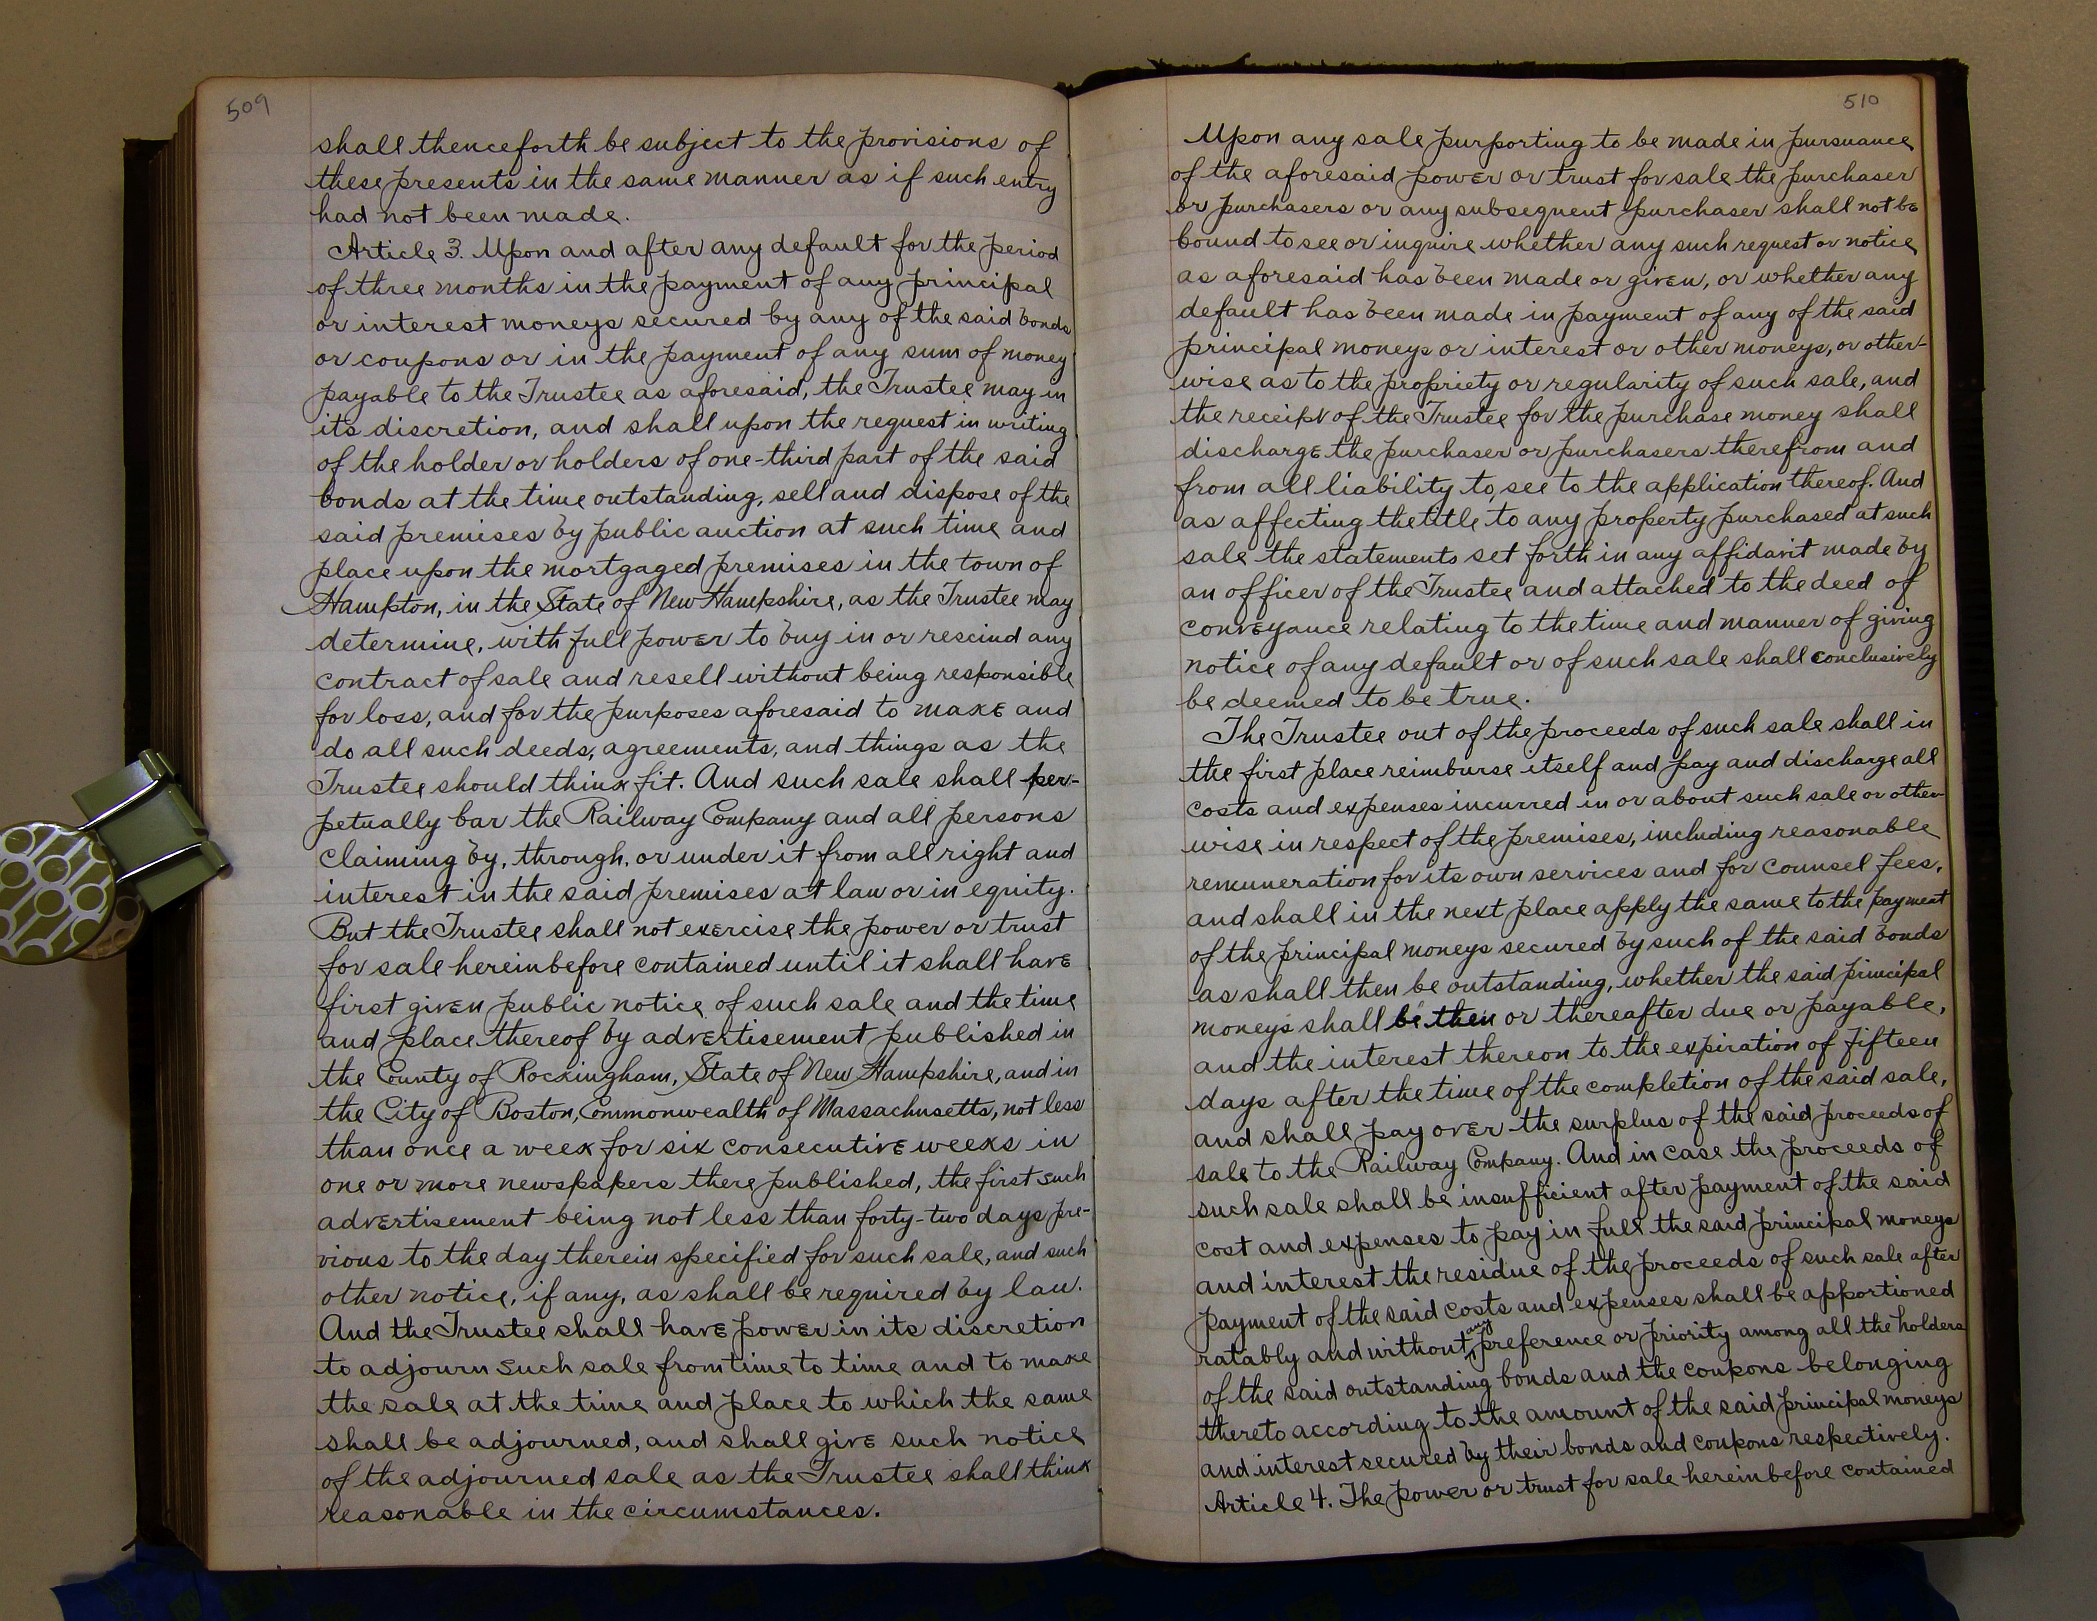 509
shall thenceforth be subject to the provisions of
these presents in the same manner as if such entry
had not been made.
Article 3. Upon and after any default for the period
of three months in the payment of any principal
or interest moneys secured by any of the said bonds
or coupons or in the payment of any sum of money
payable to the Trustee as aforesaid, the Trustee may in
its discretion, and shall upon the request in writing
of the holder or holders of one-third part of the said
bonds at the time outstanding, sell and dispose of the
said premises by public auction at such time and
place upon the mortgaged premises in the town of
Hampton, in the State of New Hampshire, as the Trustee may
determine, with full power to buy in or rescind any
contract of sale and resell without being responsible
for loss, and for the purposes aforesaid to make and
do all such deeds, agreements, and things as the
Trustee should think fit. And such sale shall per-
petually bar the Railway Company and all persons
claiming by, through, or under it from all right and
interest in the said premises at law or in equity.
But the Trustee shall not exercise the power or trust
for sale hereinbefore contained until it shall have
first given public notice of such sale and the time
and place thereof by advertisement published in
the County of Rockingham, State of New Hampshire, and in
the City of Boston, Commonwealth of Massachusetts, not less
than once a week for six consecutive weeks in
one or more newspapers there published, the first such
advertisement being not less than forty-two days pre-
vious to the day therein specified for such sale, and such
other notice, if any, as shall be required by law.
And the Trustee shall have power in its discretion
to adjourn such sale from time to time and to make
the sale at the time and place to which the same
shall be adjourned, and shall give such notice
of the adjourned sale as the Trustee shall think
reasonable in the circumstances.
510
Upon any sale purporting to be made in pursuance
of the aforesaid power or trust for sale the purchaser
or purchasers or any subsequent purchaser shall not be
bound to see or inquire whether any such request or notice
as aforesaid has been made or given, or whether any
default has been made in payment of any of the said
principal moneys or interest or other moneys, or other-
wise as to the propriety or regularity of such sale, and
the receipt of the Trustee for the purchase money shall
discharge the purchaser or purchasers therefrom and
from all liability to see to the application thereof. And
as affecting the title to any property purchased at such
sale the statements set forth in any affidavit made by
an officer of the Trustee and attached to the deed of
conveyance relating to the time and manner of giving
notice of any default or of such sale shall conclusively
be deemed to be true.
The Trustee out of the proceeds of such sale shall in
the first place reimburse itself and pay and discharge all
costs and expenses incurred in or about such sale or other-
wise in respect of the premises, including reasonable
remuneration for its own services and for counsel fees,
and shall in the next place apply the same to the payment
of the principal moneys secured by such of the said bonds
as shall then be outstanding, whether the said principal
moneys shall be then or thereafter due or payable,
and the interest thereon to the expiration of fifteen
days after the time of the completion of the said sale,
and shall pay over the surplus of the said proceeds of
sale to the Railway Company. And in case the proceeds of
such sale shall be insufficient after payment of the said
cost and expenses to pay in full the said principal moneys
and interest the residue of the proceeds of such sale after
payment of the said costs and expenses shall be apportioned
ratably and without any preference or priority among all the holders
of the said outstanding bonds and the coupons belonging
thereto according to the amount of the said principal moneys
and interest secured by their bonds and coupons respectively.
Article 4. The power or trust for sale hereinbefore contained